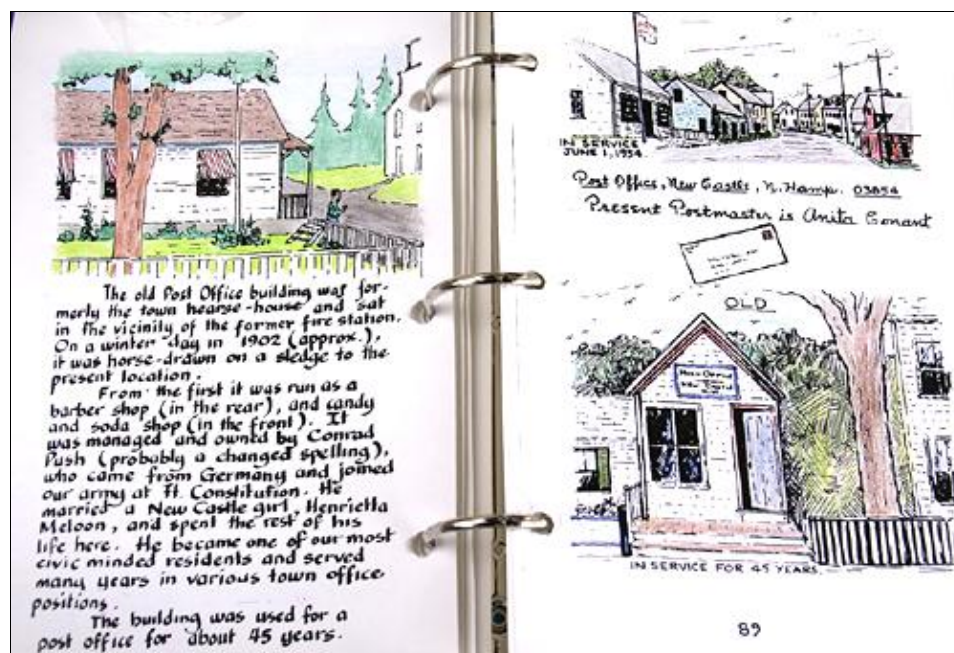 The old Post Office building was for-
merly the town hearse-house and sat
in the vicinity of the former fire station.
On a winter day in 1902 (approx.),
it was horse-drawn on a sledge to the
present location.
From the first it was run as a
barber shop (in the rear), and candy
and soda shop (in the front). It
was managed and owned by Conrad
Push (probably a changed spelling),
who came from Germany and joined
our army at Ft. Constitution. He
married a New Castle girl, Henrietta
Meloon, and spent the rest of his
life here. He became one of our most
civic minded residents and served
many years in various town office
positions.
The building was used for a
post office for about 45 years.
IN SERVICE
JUNE 1, 1954.
Post Office, New Castle, N. Hamp. 03854
Present Postmaster is Anita Conant
OLD
POST OFFICE
IN SERVICE FOR 45 YEARS.
89